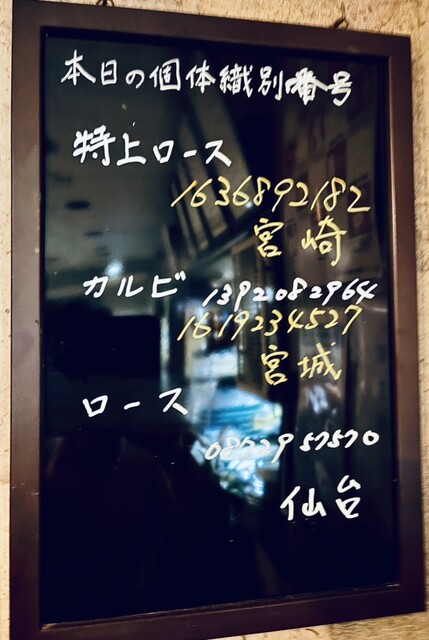 本日の個体織別番号
特上ロース
1636892182
宮崎
カルビ 1392082964
1619234527
宮城
ロース
0872957570
仙台